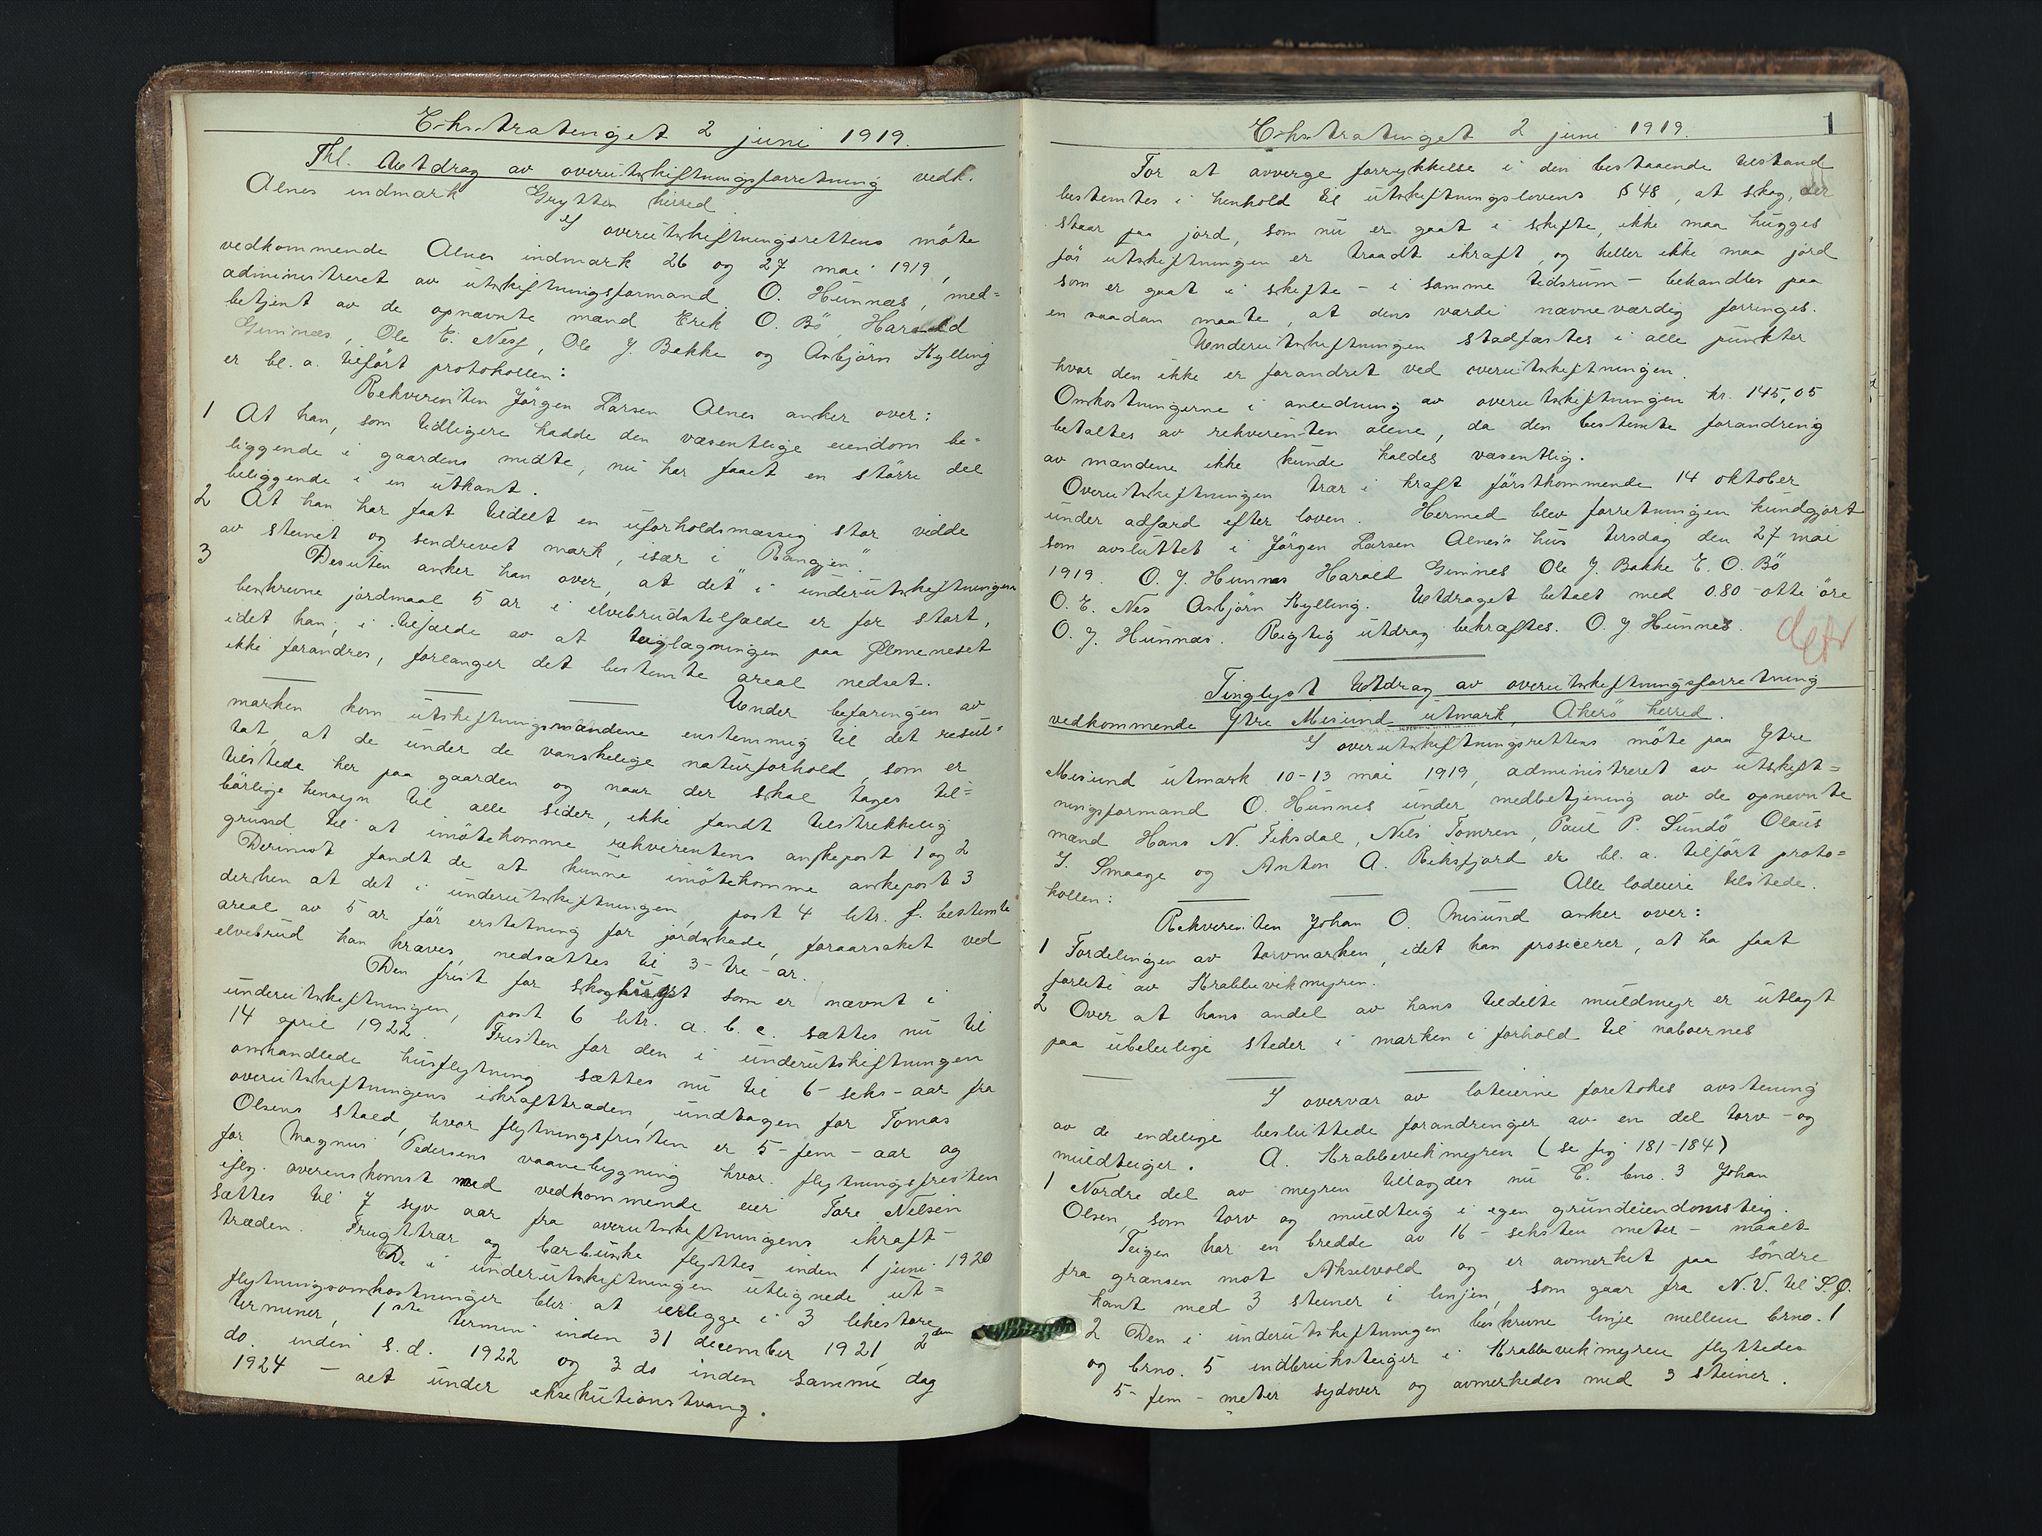 Ekstratinget 2 juni 1919.
Thl. Utdrag av overutskiftningsforretning vedk.
Alnes indmark Grytten herred.
I overutskiftningsrettens möte
vedkommende Alnes indmark 26 og 27 mai 1919,
administreret av utskiftningsformand O. Hunnes, med-
betjent av de opnævnte mænd Erik O. Bö, Harald
Gimnæs, Ole E. Nesf, Ole J. Bakke og Asbjörn Kylling
er bl. a. tilfört protokollen:
Rekvirenten Jörgen Larsen Alnes anker over:
1 At han, som tidligere hadde den væsentlige eiendom be-
liggende i gaardens midte, nu har faaet en större del
beliggende i en utkant.
2 At han har faat tildelt en uforholdsmæssig stor vidde
av steinet og sendrevet mark, især i "Rangjen".
3 Desuten anker han over, at det i underutskiftningen
beskrevne jordmaal 5 ar i elvebrudstilfælde er for stort,
idet han, i tilfælde av at teiglægningen paa Ølmeneset
ikke forandres, forlanger det bestemte areal nedsat.
Under befaringen av
marken kom utskiftningsmændene enstemmig til det resul-
tat, at de under de vanskelige naturforhold, som er
tilstede her paa gaarden og naar der skal tages til-
börlige hensyn til alle sider, ikke fandt tilstrekkelig
grund til at imötekomme rekvirentens ankepost 1 og 2
Derimot fandt de at kunne imötekomme ankepost 3
derhen at det i underutskiftningen, post 4 litr. f. bestemte
areal av 5 ar för erstatning for jordskade, foraarsaket ved
elvebrud kan kræves, nedsættes til 3 - tre - ar.
Den frist for skoghugst som er nævnt i
underutskiftningen, post 6 litr. a. b. c. sættes nu til
14 april 1922. Fristen for den i underutskiftningen
omhandlede husflytning sættes nu til 6 - seks - aar fra
overutskiftningens ikrafttræden, undtagen for Tomas
Olsens stald, hvor flytningsfristen er 5 - fem - aar og
for Magnus Pedersens vaanebygning hvor flytningsfristen
iflg. overenskomst med vedkommende eier Tore Nilsen
sættes til 7 syv aar fra overutskiftningens ikraft-
træden. Frugttrær og bærbuske flyttes inden 1 juni 1920
De i underutskiftningen utlignede ut-
flytningsomkostninger blir at utlegge i 3 likestore
terminer, 1ste termin inden 31 december 1921, 2den
do. inden s.d. 1922 og 3 do inden samme dag
1924 - alt under eksekutionstvang.
Ekstratinget 2 juni 1919. 1
For at avverge forrykkelse i den bestaaende tilstand
bestemtes i henhold til utskiftningslovens § 48, at skog, der
staar paa jord, som nu er gaat i skifte, ikke maa hugges
för utskiftningen er traadt ikraft, og heller ikke maa jord
som er gaat i skifte - i samme tidsrum - behandles paa
en saadan maate, at dens værdi nævneværdig forringes.
Underutskiftningen stadfæstes i alle punkter
hvor den ikke er forandret ved overutskiftningen.
Omkostningerne i anledning av overutskiftningen kr. 145,05
betaltes av rekvirenten alene, da den bestemte forandring
av mændene ikke kunde kaldes væsentlig.
Overutskiftningen trær i kraft förstkommende 14 oktober
under adfærd efter loven. Hermed blev forretningen kundgjort
som avsluttet i Jörgen Larsen Alnes's hus tirsdag den 27 mai
1919. O. J. Hunnes Harald Gimnes Ole J. Bakke E. O. Bö
O. E. Nes Asbjörn Kylling. Utdraget betalt med 0.80 - otti öre
O. J. Hunnes. Rigtig utdrag bekræftes. O. J Hunnes.
Tinglyst Utdrag av overutskiftningsforretning
vedkommende Ytre Misund utmark, Akerö herred.
I overutskiftningsrettens möte paa Ytre
Misund utmark 10-13 mai 1919, administreret av utskift-
ningsformand O. Hunnes under medbetjening av de opnevnte
mænd Hans N. Fiksdal, Nils Tomren, Paul P. Sundö Olaus
I. Smaage og Anton A. Reksfjord er bl. a. tilfört proto-
kollen: Alle lodeiere tilstede.
Rekvirenten Johan O. Misund anker over:
1 Fordelingen av torvmarken, idet han prosicerer, at ha faat
forlite av Krabbevikmyren.
2 Over at hans andel av hans tildelte muldmyr er utlagt
paa ubeleilige steder i marken i forhold til naboernes
I overvær av loteierne foretokes avstening
av de endelige besluttede forandringer av en del torv- og
muldteiger. A. Krabbevikmyren (se fig 181-184)
1 Nordre del av myren tillægdes nu E. bno. 3 Johan
Olsen, som torv og muldteig i egen grundeiendomsteig.
Teigen har en bredde av 16 - seksten meter - maalt
fra grænsen mot Akselvold og er avmerket paa söndre
kant med 3 steiner i linjen, som gaar fra N.V. til S.Ø.
2 Den i underutskiftningen beskrevne linje mellem bno. 1
og bno. 5 indbruksteiger i Krabbevikmyren flyttedes
5 - fem - meter sydover og avmerkedes med 3 steiner.